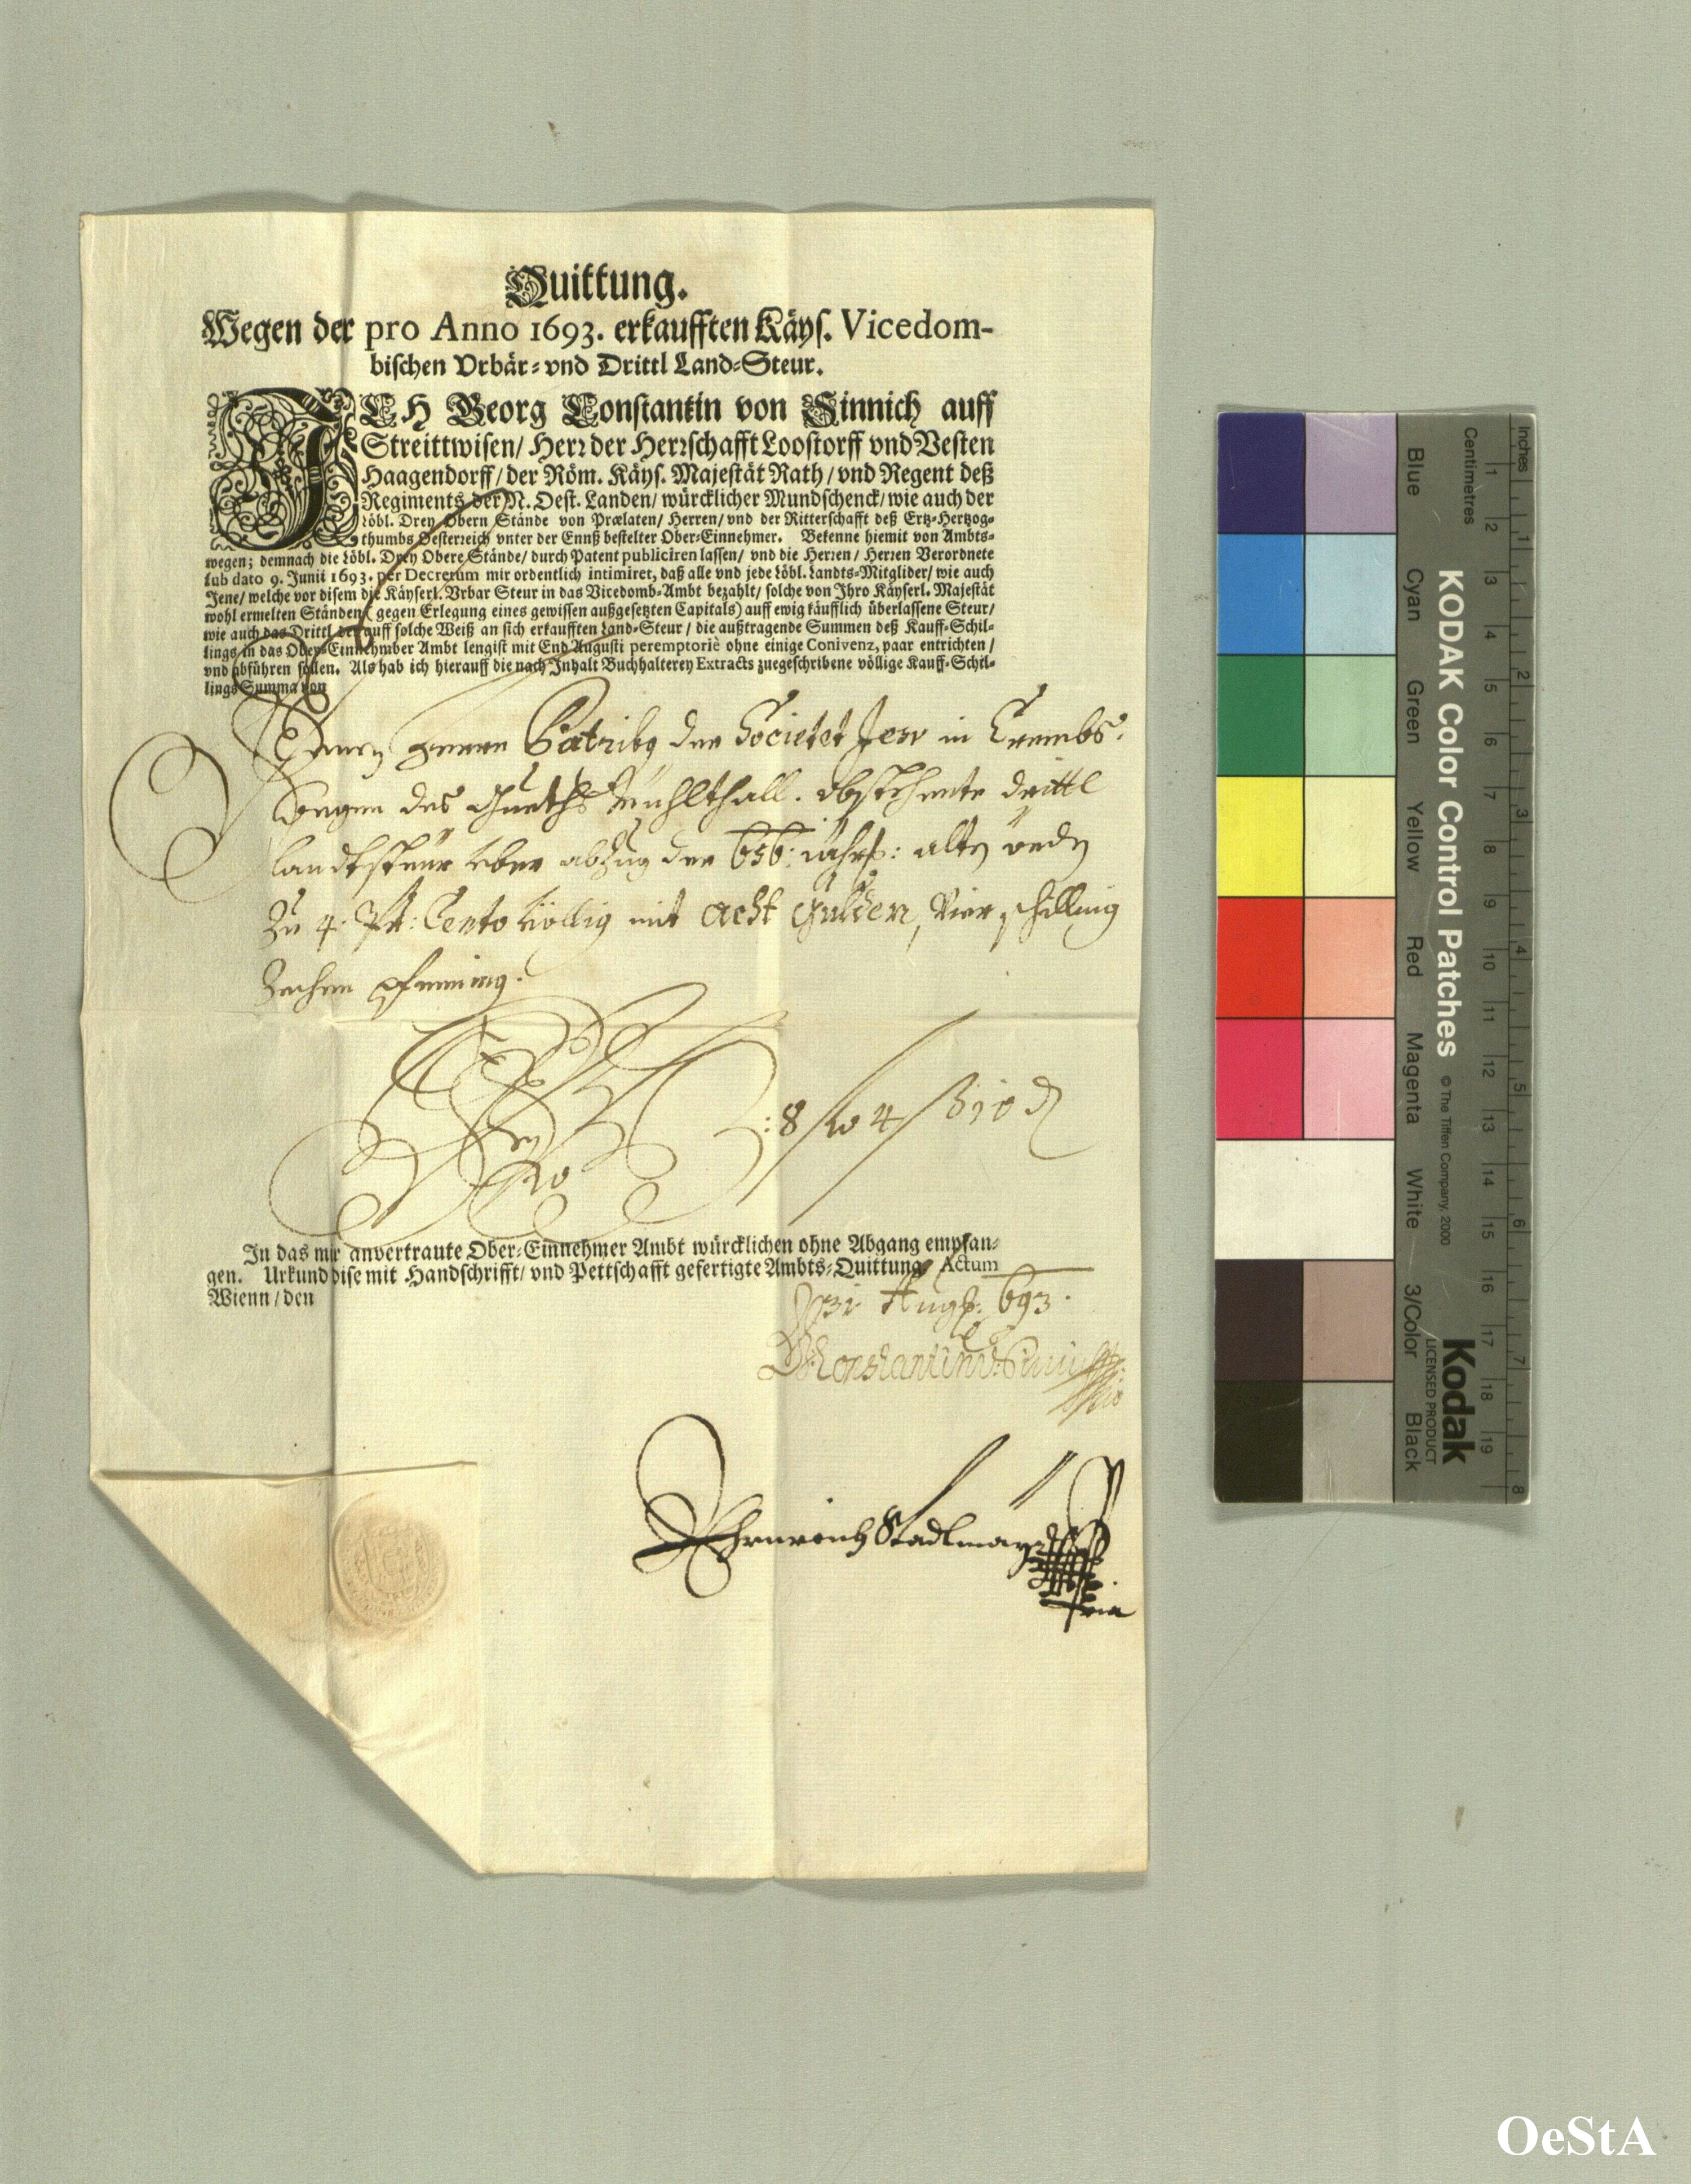 Quittung.
Wegen der pro Anno 1693. erkaufften Käys. Vicedom-
bischen Vrbär- vnd Drittl Land-Steur.
ICH Georg Constantin von Sinnich auff
Streittwisen/ Herr der Herrschafft Loostorff vnd Vesten
Haagendorff/ der Röm. Käys. Majestät Rath/ vnd Regent deß
Regiments der N. Oest. Landen/ würcklicher Mundschenck/ wie auch der
löbl. Drey Obern Stände von Prælaten/ Herren/ vnd der Ritterschafft deß Ertz-Hertzog-
thumbs Oesterreich vnter der Ennß bestelter Ober-Einnehmer. Bekenne hiemit von Ambts-
wegen; demnach die löbl. Drey Obere Stände/ durch Patent publiciren lassen/ vnd die Herren/ Herren Verordnete
sub dato 9. Junii 1693. per Decretum mir ordentlich intimiret, daß alle vnd jede löbl. Landts-Mitglider/ wie auch
Jene/ welche vor disem die Käyserl. Vrbar Steur in das Vicedomb-Ambt bezahlt/ solche von Ihro Käyserl. Majestät
wohl ermelten Ständen (gegen Erlegung eines gewissen außgesetzten Capitals) auff ewig käufflich überlassene Steur/
wie auch das Drittl der auff solche Weiß an sich erkaufften Land-Steur/ die außtragende Summen deß Kauff-Schil-
lings in das Ober-Einnehmber Ambt lengist mit End Augusti peremptoriè ohne einige Conivenz, paar entrichten/
vnd abführen sollen. Als hab ich hierauff die nach Inhalt Buchhalterey Extracts zuegeschribene völlige Kauff-Schil-
lings Summa von
Denen Herrn Patribg der Societet Jesv in Crembs.
wegen des Gueths Mühlthall. drittl
landtsteür yber abzug der 656: jährs: alten öedn
Zu 4. Pr: Cento völlig mit Acht Gulden, Vier schilling
Zechen pfening.
:8/ 4/ 10 d
In das mir anvertraute Ober-Einnehmer Ambt würcklichen ohne Abgang empfan-
gen. Urkund dise mit Handschrifft/ vnd Pettschafft gefertigte Ambts-Quittung. Actum
Wienn/ den
31 Augs: 693.
Constantin v. Sinnich
Ehrnreich Stadlmayr
Inches
Centimetres
KODAK Color Control Patches
© The Tiffen Company, 2000
Kodak
LICENSED PRODUCT
Blue
Cyan
Green
Yellow
Red
Magenta
White
3/Color
Black
1 2 3 4 5 6 7 8 9 10 11 12 13 14 15 16 17 18 19
1 2 3 4 5 6 7 8
OeStA